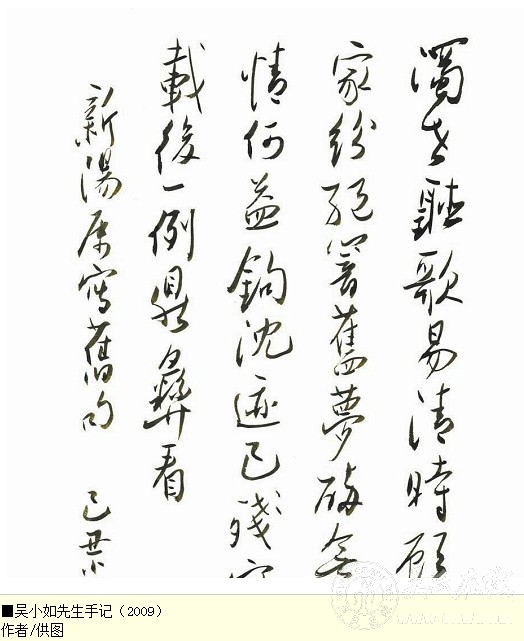 濁世聽歌易清時顧
家紛絕響舊夢無
情何益鉤沈迹已殘
載後一例鼎彝看
新陽屬寫舊句 己丑
■吴小如先生手记（2009）
作者/供图